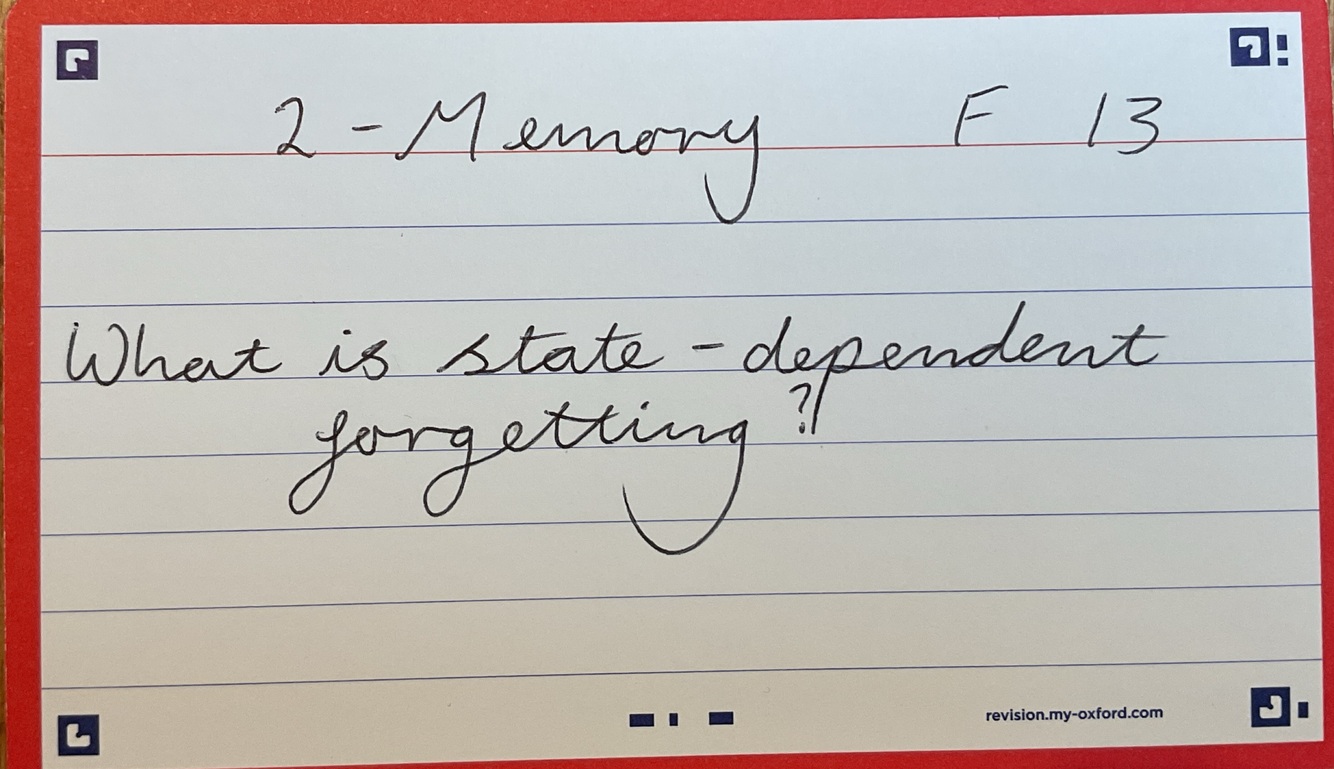 2 - Memory F 13
What is state - dependent
forgetting?
revision.my-oxford.com